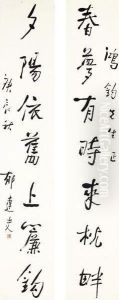 鴻鈞先生正
春夢有時來枕畔
夕陽依舊上簾鈎
郁達夫